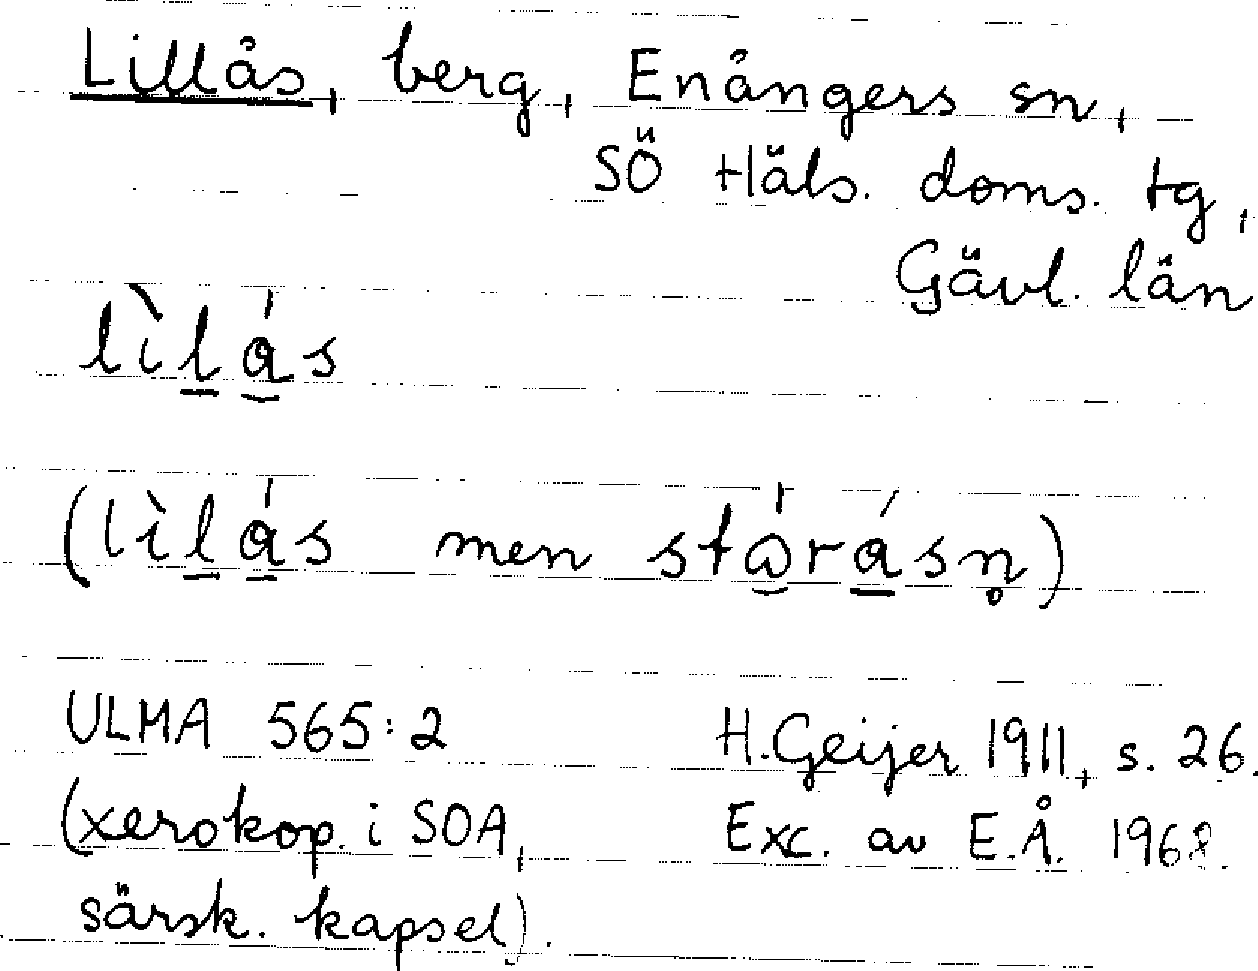 Lillås, berg, Enångers sn,
SÖ Häls. doms. tg,
Gävl. län
lìlás
(lìlás men stòrásn̥)
ULMA 565:2 H. Geijer 1911, s. 26.
(xerokop. i SOA, Exc. av E.Å. 1968.
särsk. kapsel).